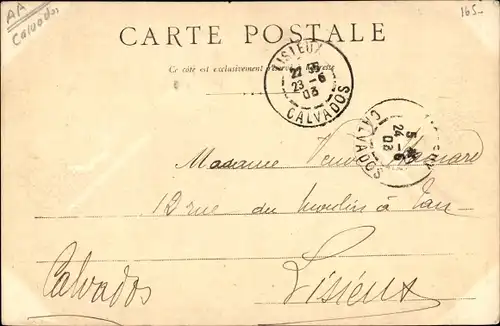 AA
Calvados
165-
CARTE POSTALE
Ce côté est exclusivement réservé à l'adresse
LISIEUX
22 35
23 -6
03
CALVADOS
5
24 -6
03
CALVADOS
Madame Veuve
12 rue du moulin à Tan
Calvados
Lisieux